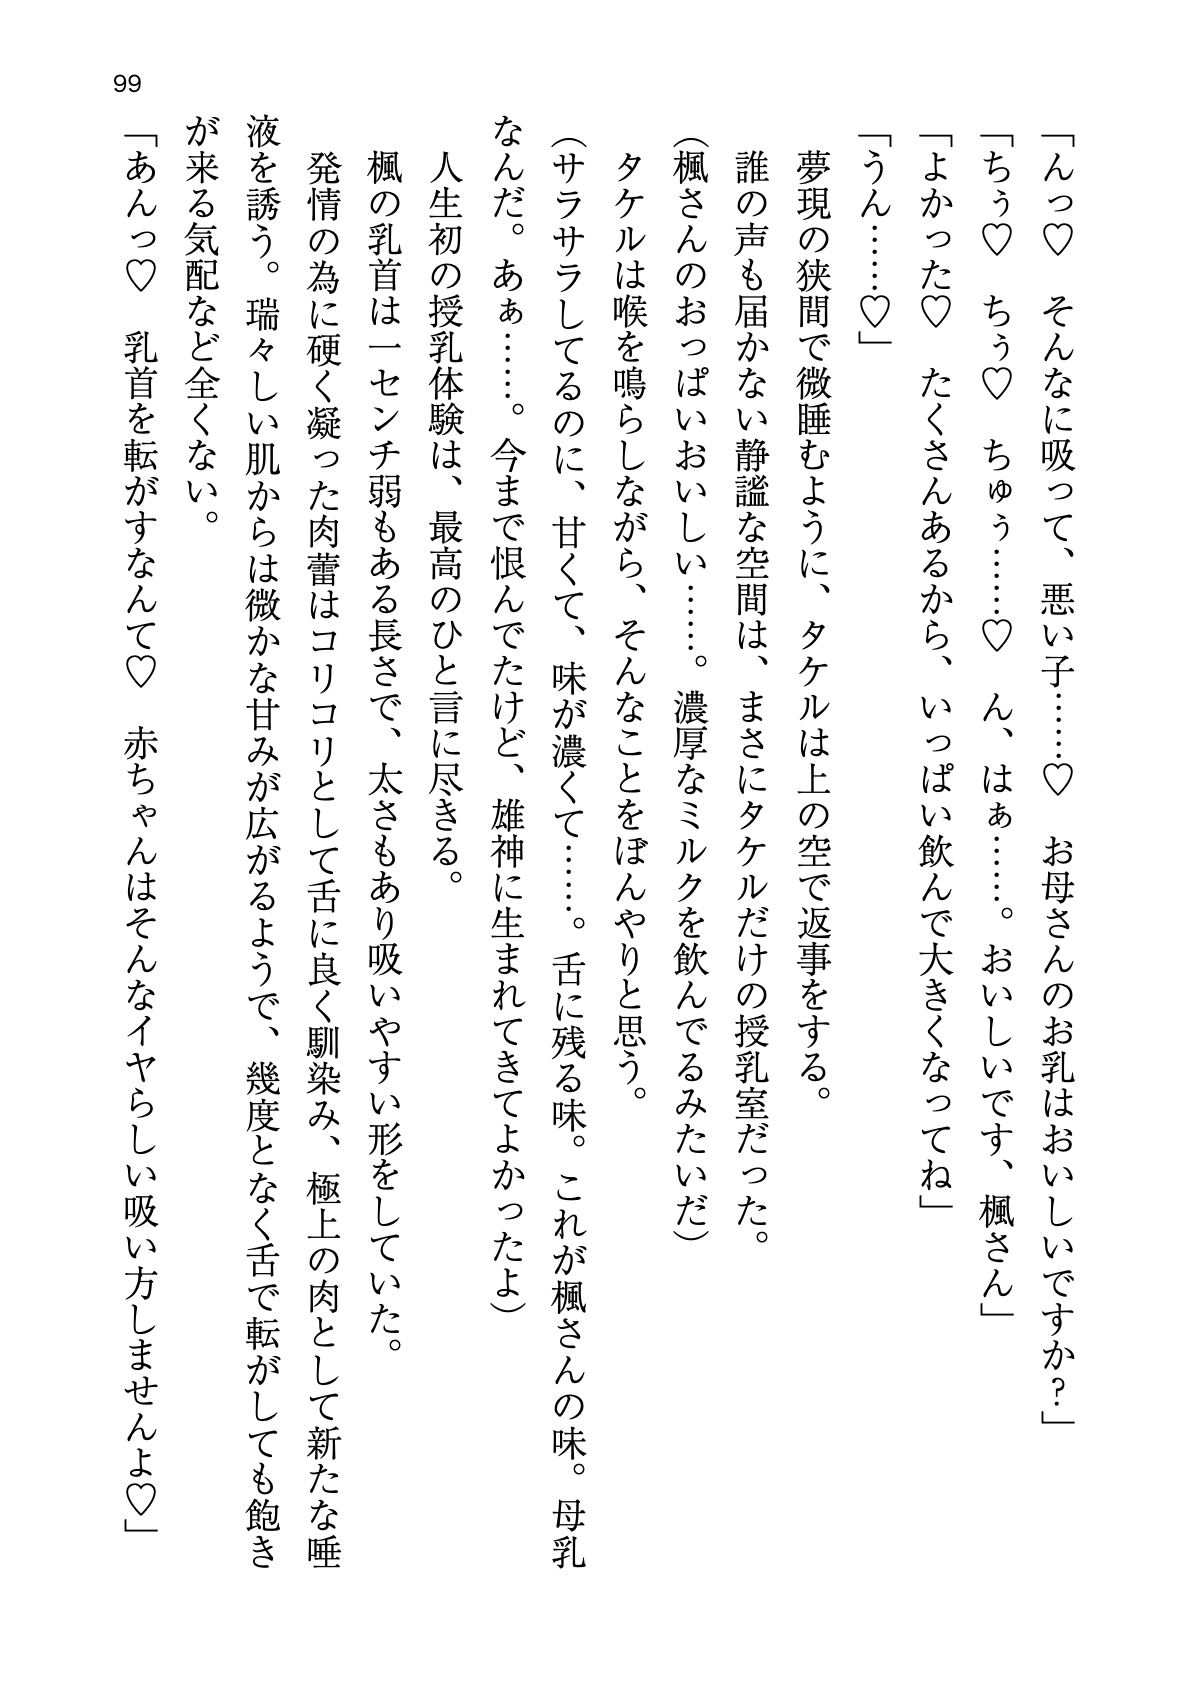 99
「んっ♡　そんなに吸って、悪い子……♡　お母さんのお乳はおいしいですか？」
「ちぅ♡　ちぅ♡　ちゅぅ……♡　ん、はぁ……。おいしいです、楓さん」
「よかった♡　たくさんあるから、いっぱい飲んで大きくなってね」
「うん……♡」
　夢現の狭間で微睡むように、タケルは上の空で返事をする。
　誰の声も届かない静謐な空間は、まさにタケルだけの授乳室だった。
（楓さんのおっぱいおいしい……。濃厚なミルクを飲んでるみたいだ）
　タケルは喉を鳴らしながら、そんなことをぼんやりと思う。
（サラサラしてるのに、甘くて、味が濃くて……。舌に残る味。これが楓さんの味。母乳
なんだ。あぁ……。今まで恨んでたけど、雄神に生まれてきてよかったよ）
　人生初の授乳体験は、最高のひと言に尽きる。
　楓の乳首は一センチ弱もある長さで、太さもあり吸いやすい形をしていた。
　発情の為に硬く凝った肉蕾はコリコリとして舌に良く馴染み、極上の肉として新たな唾
液を誘う。瑞々しい肌からは微かな甘みが広がるようで、幾度となく舌で転がしても飽き
が来る気配など全くない。
「あんっ♡　乳首を転がすなんて♡　赤ちゃんはそんなイヤらしい吸い方しませんよ♡」